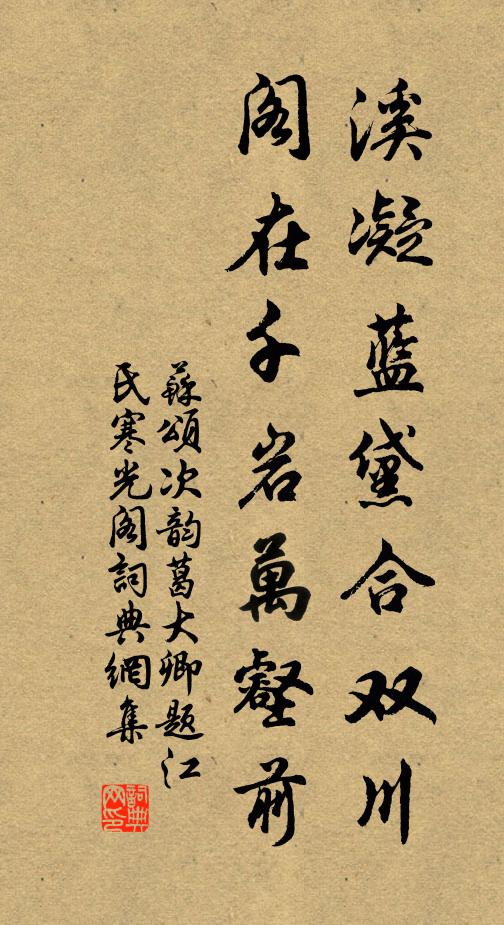 溪凝蓝黛合双川
阁在千岩萬壑前
蘇頌次韵葛大卿题江
氏寒光阁詞典網集
詞典網印